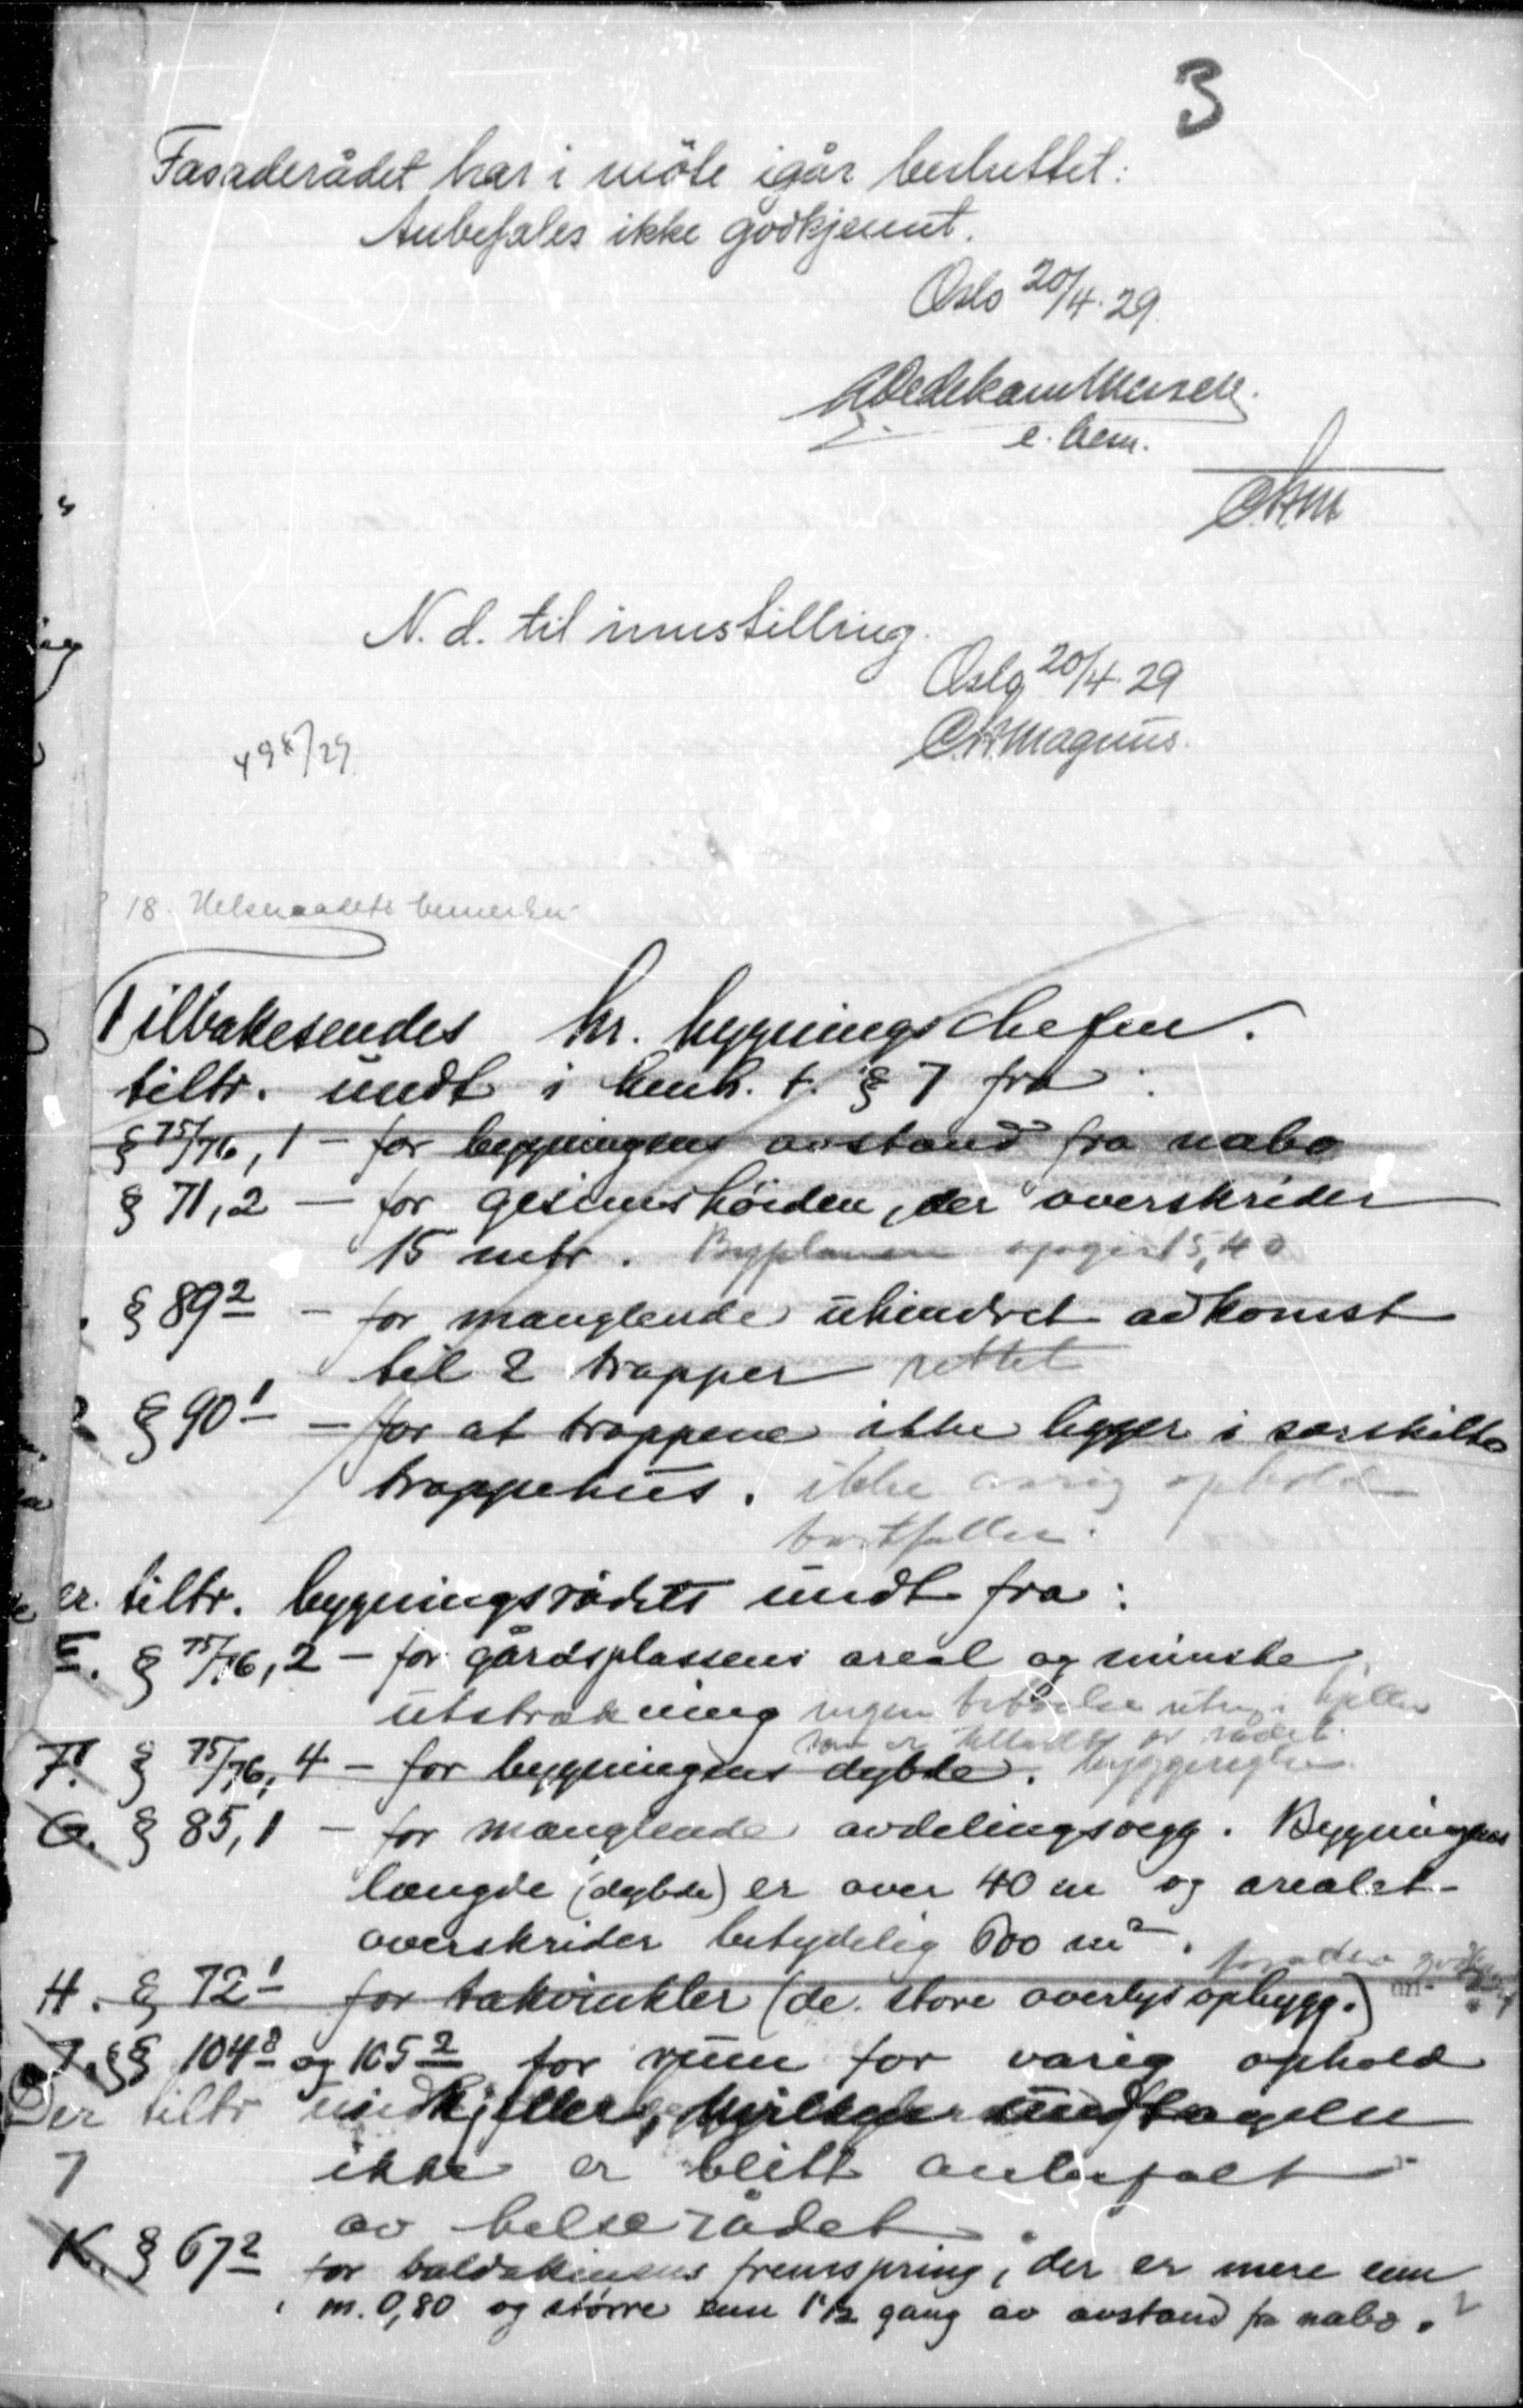 3
Fasaderådet har i möte igår besluttet:
Anbefales ikke godkjennt.
Oslo 20/4.29
e. bem.
N. d. til innstilling.
Oslo 20/4.29
C.H. Magnus.
498/29
18. Helseraadets bemerkn
Tilbakesendes hr. bygningschefen.
tiltr. undt i henh. t. § 7 fra:
§ 75/76, 1 - for bygningens avstand fra nabo
§ 71, 2 - for gesimshöiden, der overskrider
15 mtr. Byplanen opgir 15,40
§ 89² - for manglende uhindret adkomst
til 2 trapper rettet
§ 90¹ - for at trappene ikke ligger i særskilte
trappehus. ikke varig ophold
bortfaller.
er. tiltr. bygningsrådets undt fra:
E. § 75/76, 2 - for gårdsplassens areal og minste
utstrækning ingen beboelse kjeller
som er av rådet.
F. § 75/76, 4 - for bygningens dybde.
G. § 85, 1 - for manglende avdelingsvegg. Bygningens
længde (dybde) er over 40 m og arealet
overskrider betydelig 600 m².
H. § 72¹ for takvinkler (de store overlysopbygg.)
J. §§ 104⁸ og 105² for rum for varig ophold
Der tiltr undt kjeller, undtagelse
7 ikke er blitt anbefalt
av helserådet.
K. § 67² for baldakinens fremspring, der er mere enn
m. 0,80 og større enn 1½ gang av avstand fra nabo.